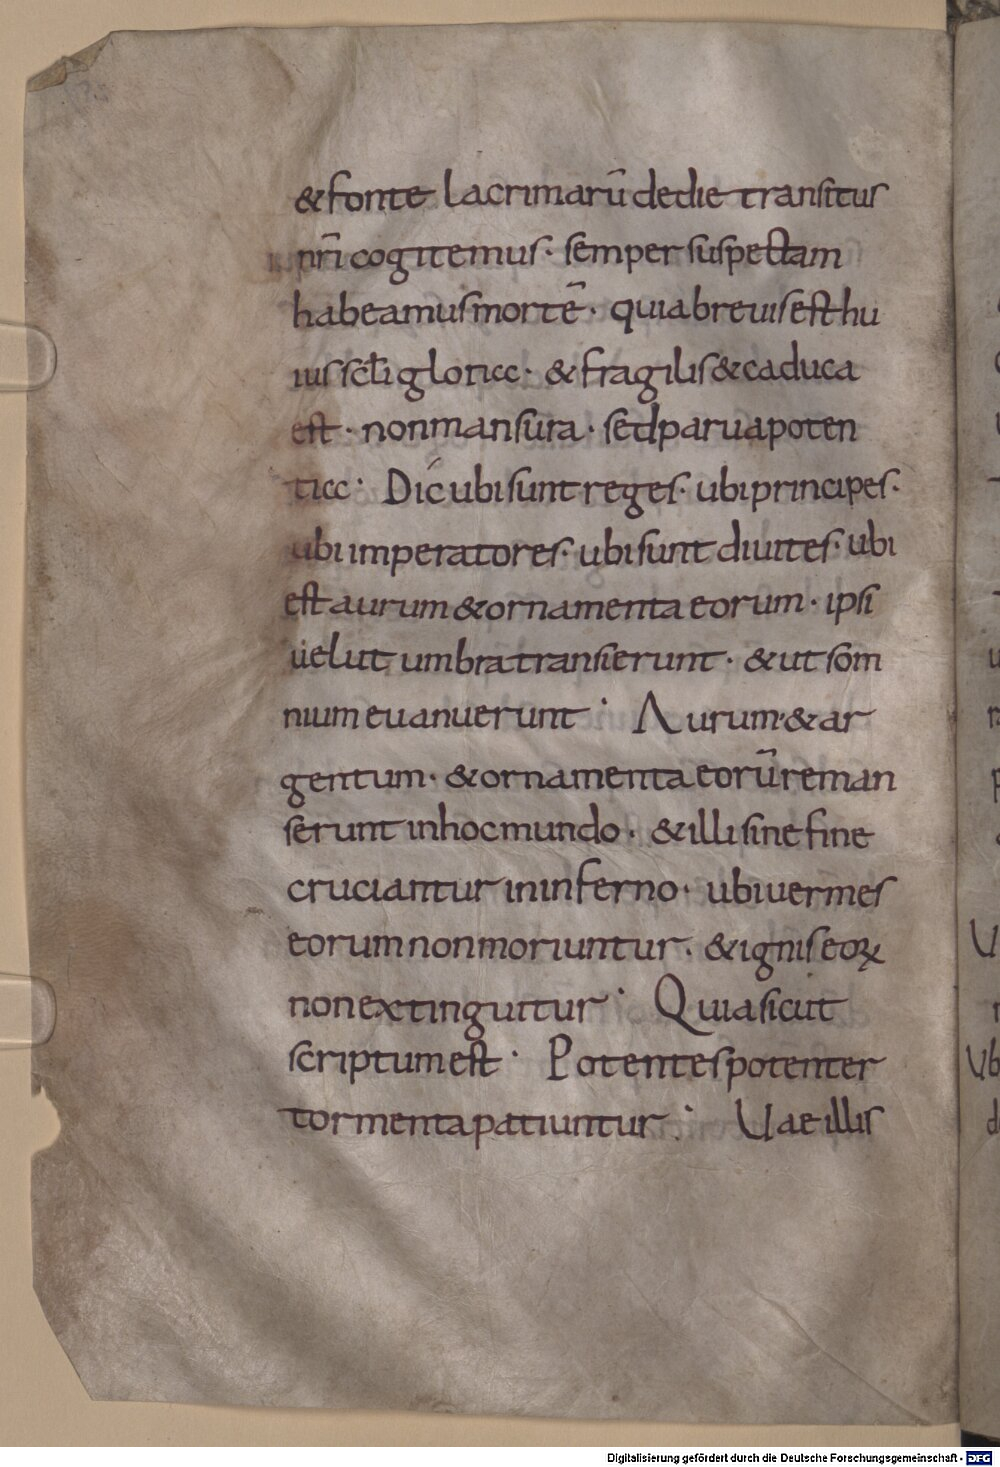 & fonte lacrimarū dedie transitus
nr̄i cogitemus · semper suspectam
habeamus mortē · quia breuis est hu
ius sc̄li gloria · & fragilis & caduca
est · non mansura · sed parua poten
tia · Dic ubi sunt reges · ubi principes ·
ubi imperatores · ubi sunt diuites · ubi
est aurum & ornamenta eorum · ipsi
uelut umbra transierunt · & ut som
nium euanuerunt · Aurum · & ar
gentum · & ornamenta eorū reman
serunt in hoc mundo · & illi sine fine
cruciantur in inferno · ubi uermes
eorum non moriuntur · & ignis eoꝝ
non extinguitur · Quia sicut
scriptum est · Potentes potenter
tormenta patiuntur · Uae illis
Digitalisierung gefördert durch die Deutsche Forschungsgemeinschaft - DFG